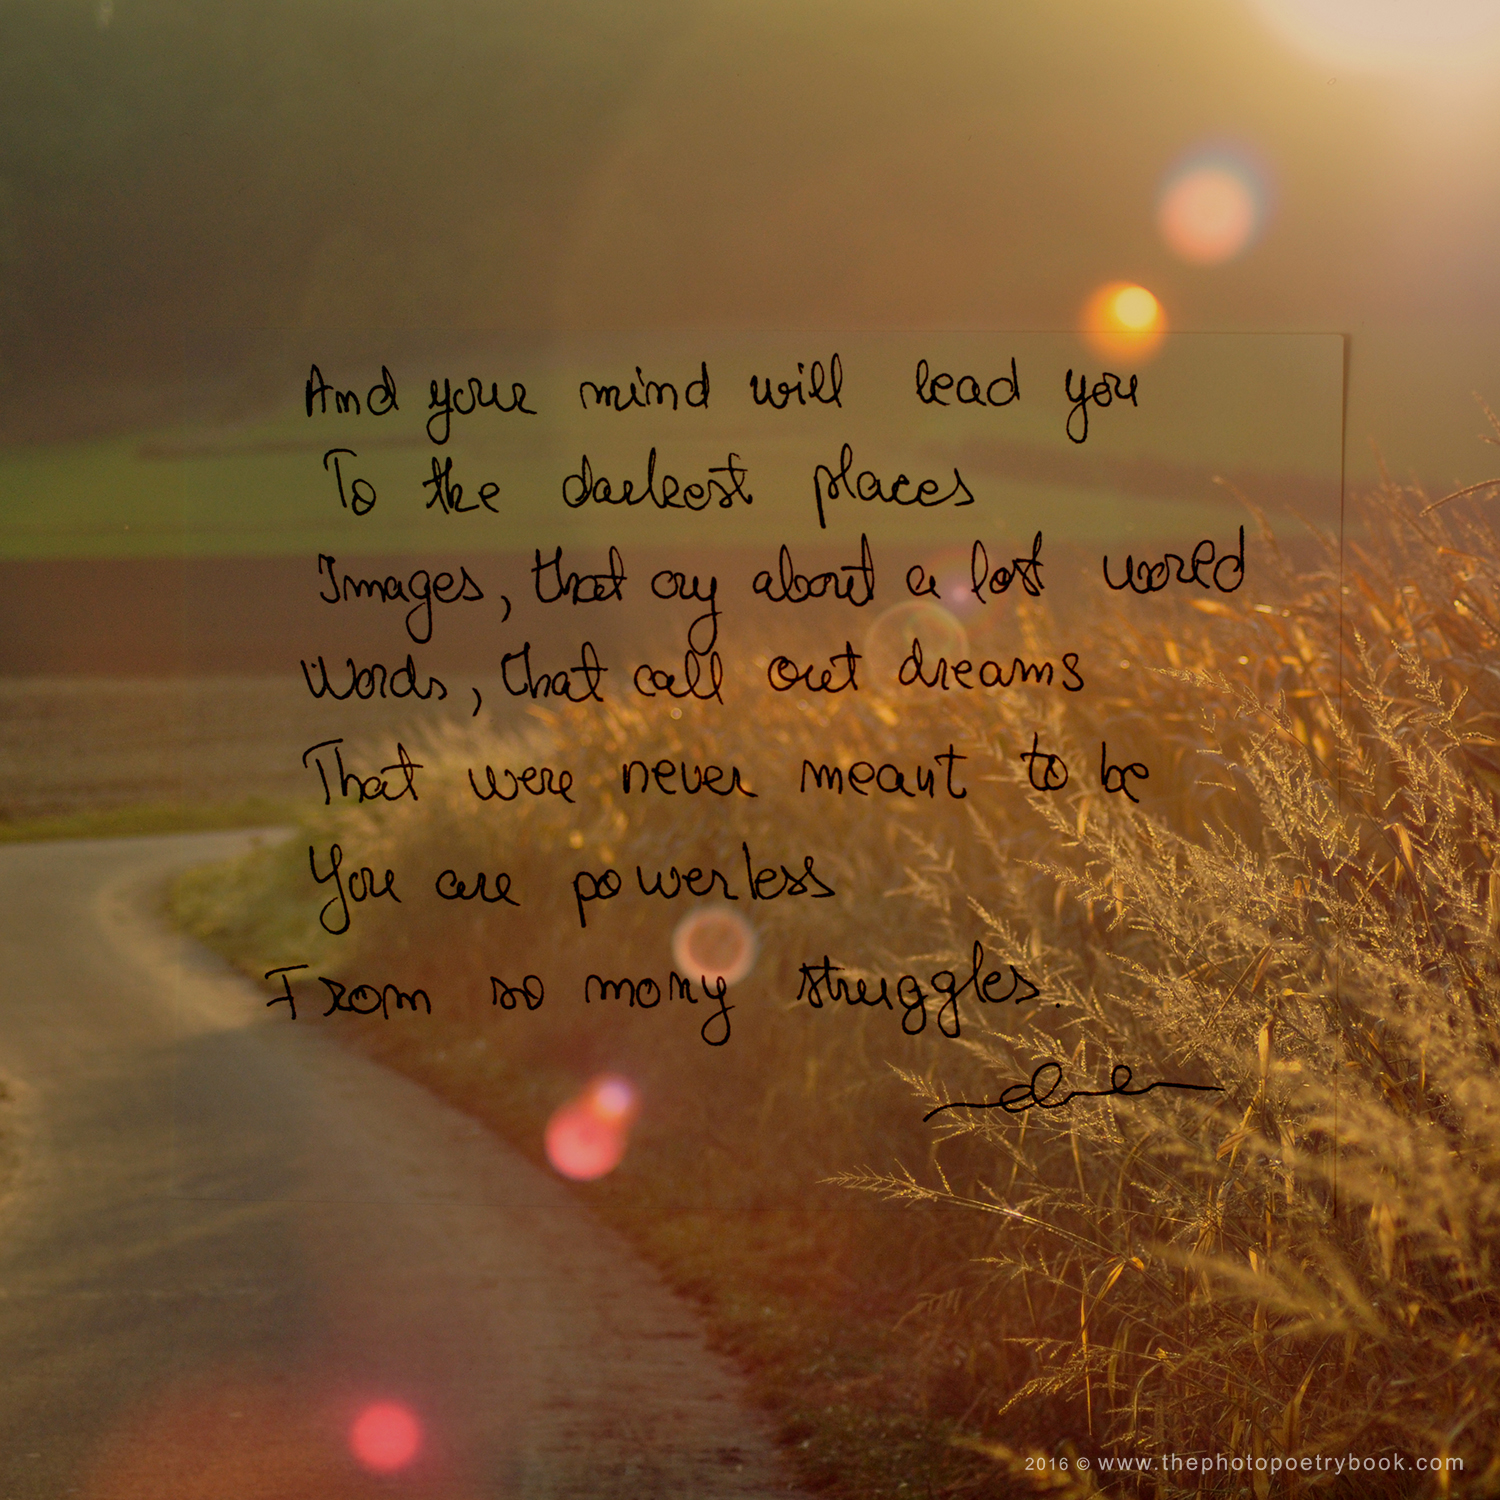 And your mind will lead you
To the darkest places
Images, that cry about a lost world
Words, that call out dreams
That were never meant to be
You are powerless
From so many struggles.
2016 © www.thephotopoetrybook.com